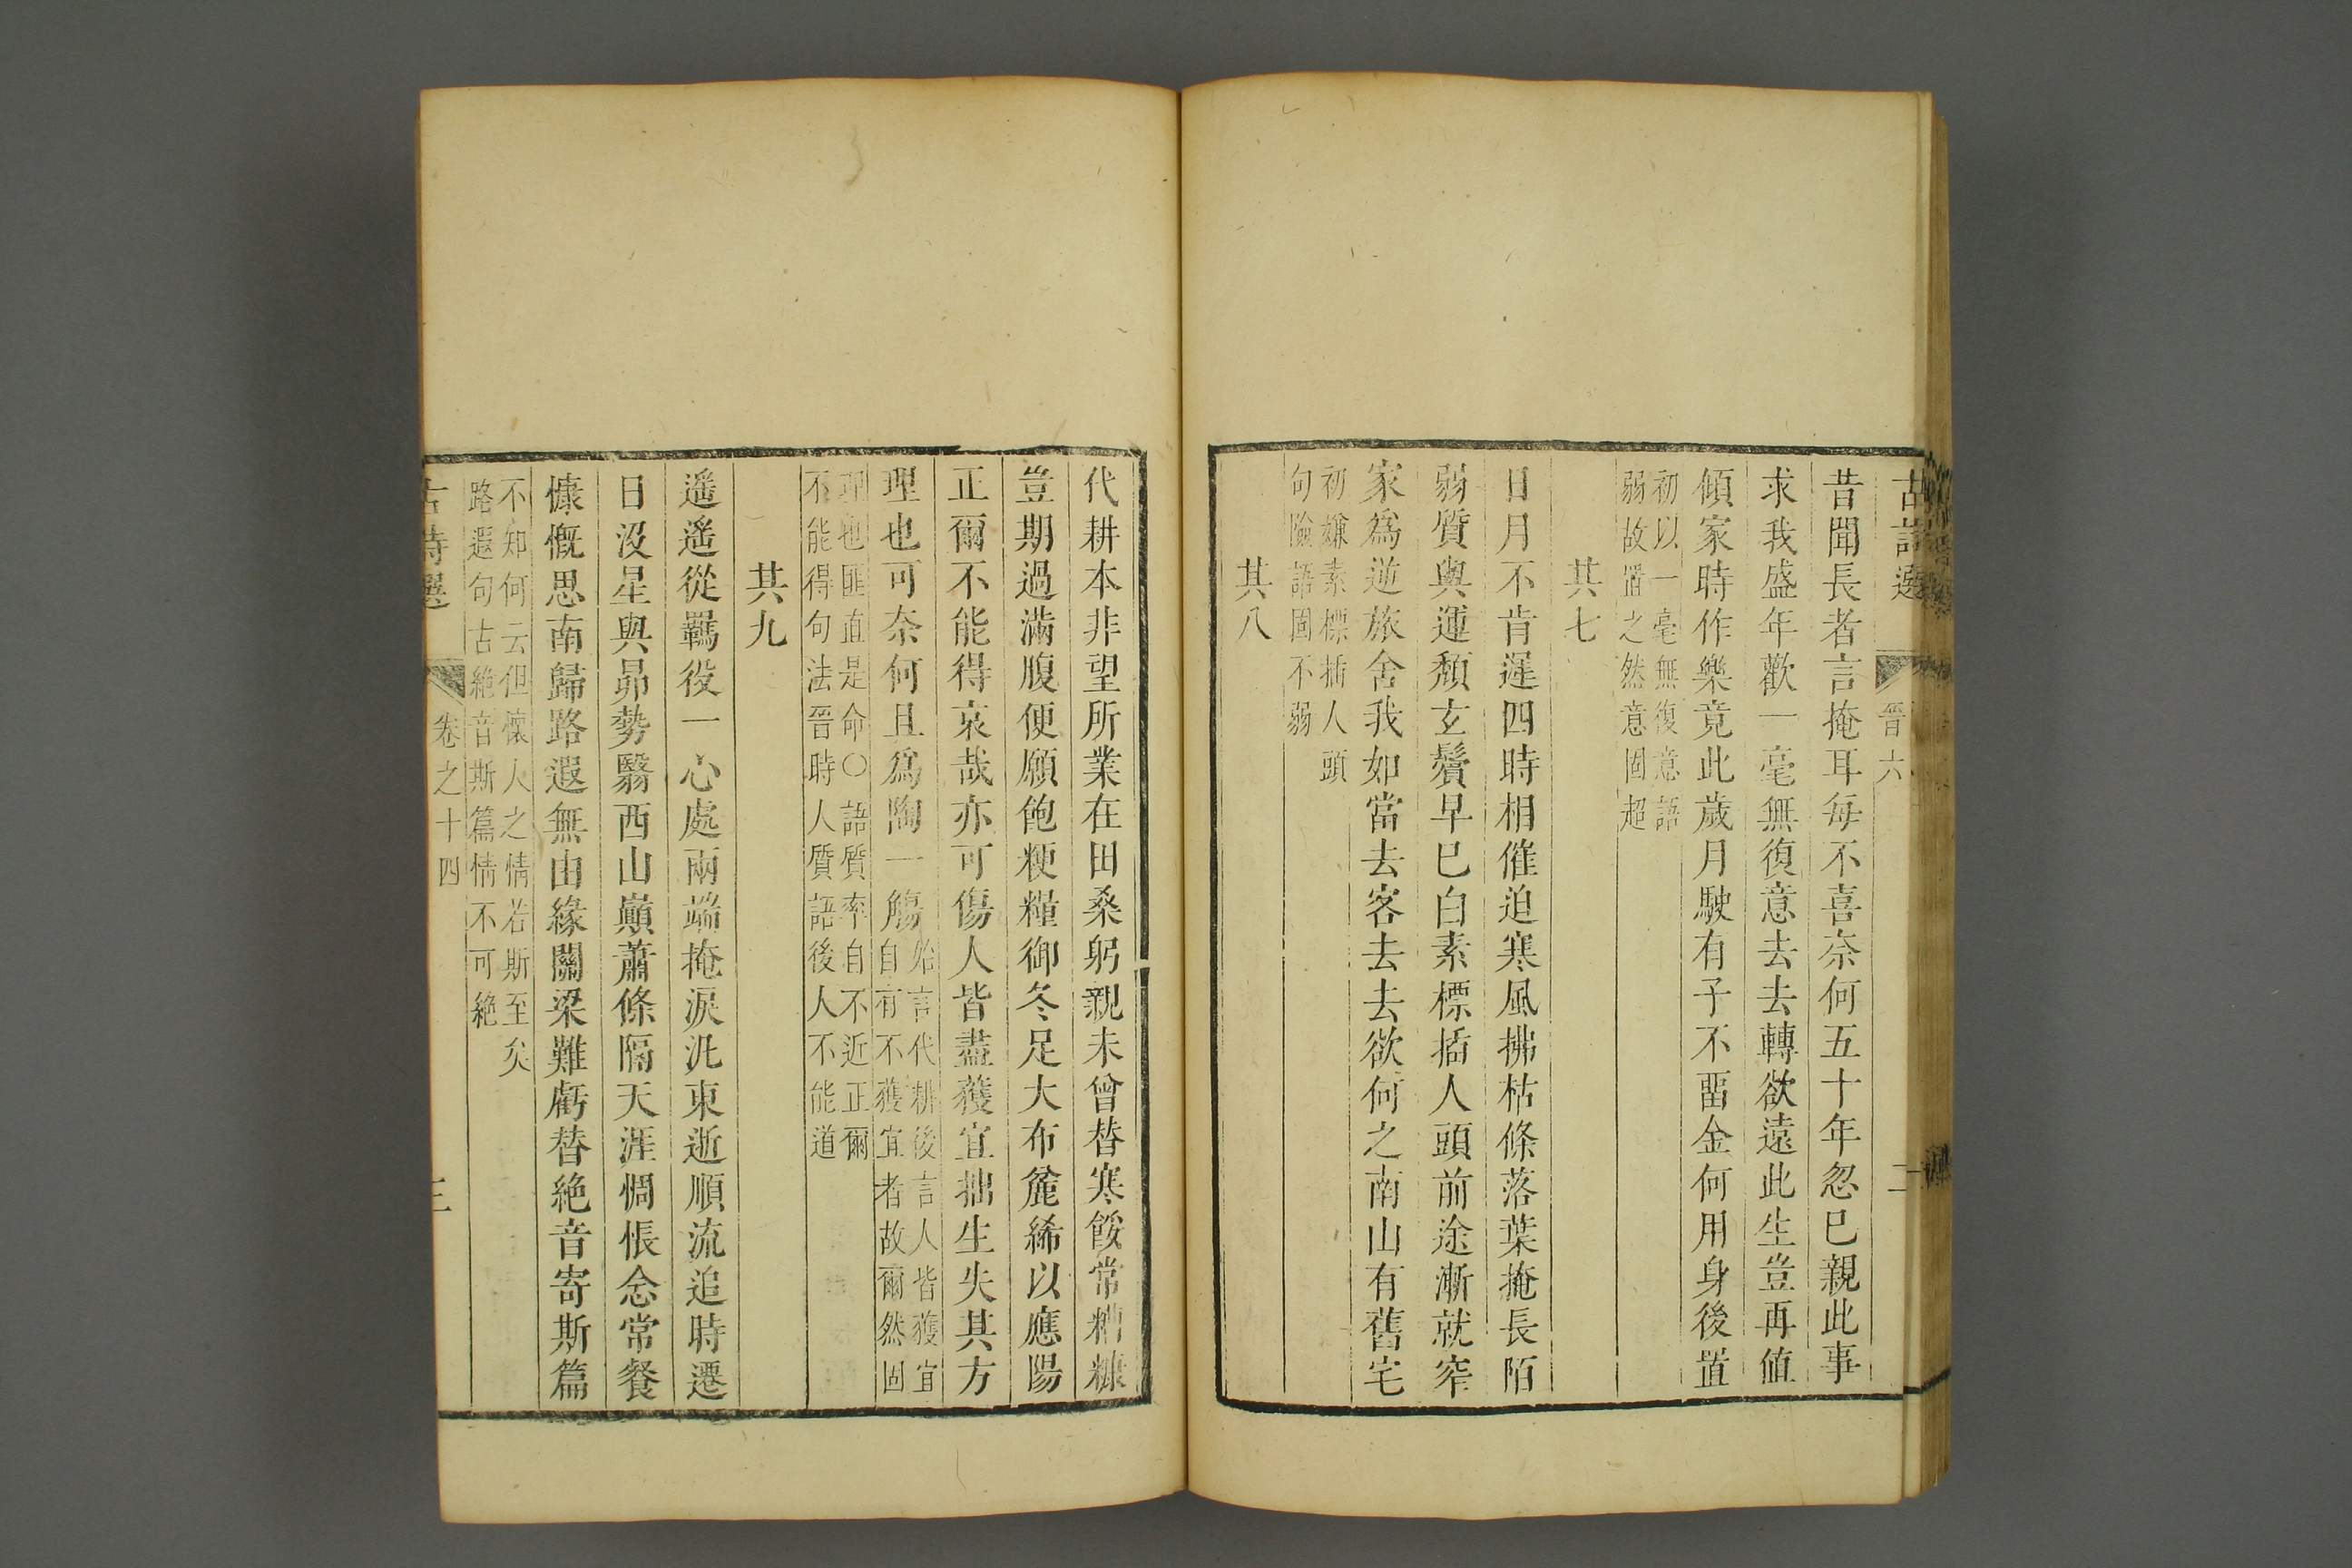 古詩選 晉六 二
昔聞長者言掩耳每不喜奈何五十年忽巳親此事
求我盛年歡一毫無復意去去轉欲遠此生豈再値
傾家時作樂竟此歲月駛有子不畱金何用身後置
初以一毫無復意語
弱故置之然意固超
其七
日月不肯遲四時相催迫寒風拂枯條落葉掩長陌
弱質與運頹玄鬢早巳白素標揷人頭前途漸就窄
家爲逆旅舍我如當去客去去欲何之南山有舊宅
初嫌素標揷人頭
句險語固不弱
其八
代耕本非望所業在田桑躬親未曾替寒餒常糟糠
豈期過滿腹便願飽粳糧御冬足大布麄絺以應陽
正爾不能得哀哉亦可傷人皆盡獲宜拙生失其方
理也可奈何且爲陶一觴
始言代耕後言人皆獲宜
自有不獲宜者故爾然固
理也匪直是命〇語質率自不近正爾
不能得句法晉時人質語後人不能道
其九
遥遥從羈役一心處兩端掩淚汎東逝順流追時遷
日沒星與昴勢翳西山巔蕭條隔天涯惆悵念常餐
慷慨思南歸路遐無由緣關梁難虧替絶音寄斯篇
不知何云但懷人之情若斯至矣
路遐句古絶音斯篇情不可絶
古詩選 卷之十四 三